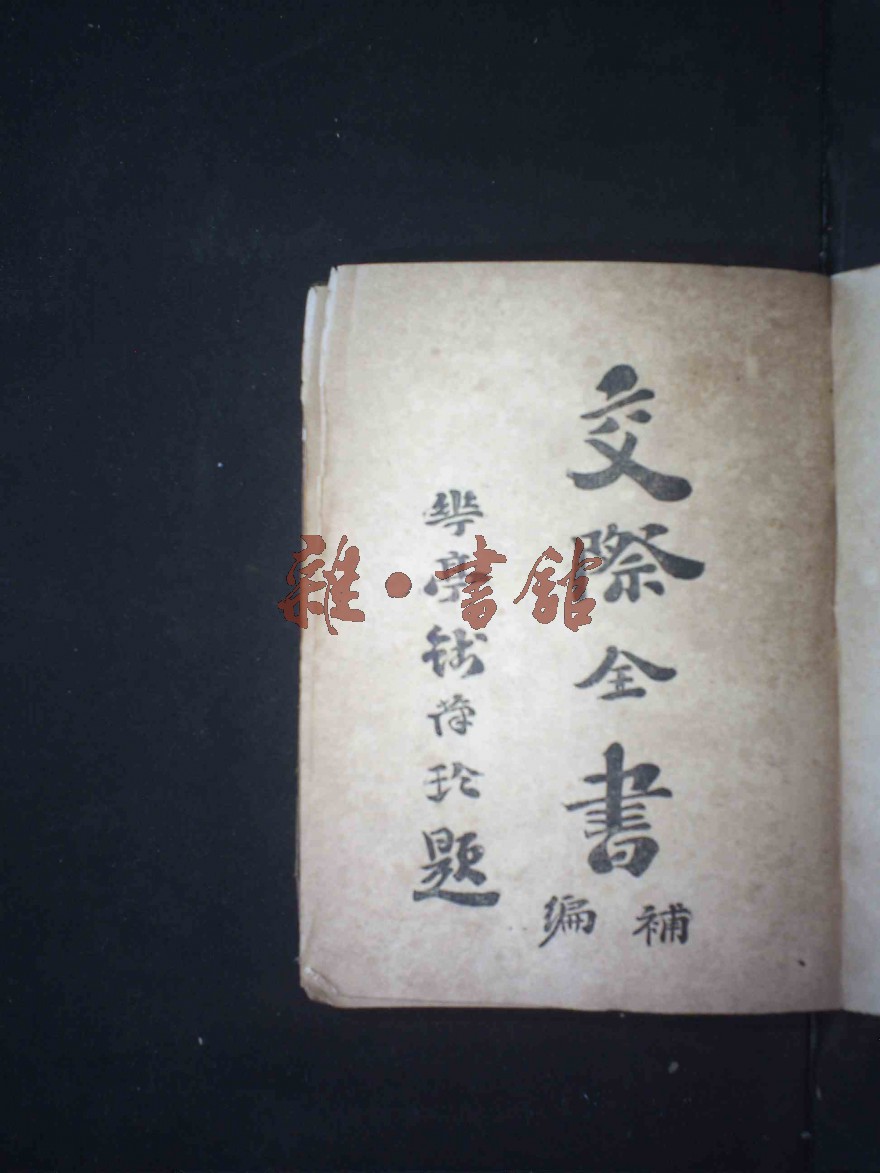 交際全書
補編
華亭錢荷玲題
雜·書館